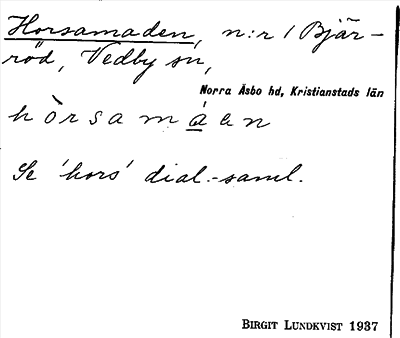 Horsamaden, n:r 1 Bjär-
röd, Vedby sn,
Norra Åsbo hd, Kristianstads län
hòrsamáen
Se 'hors' dial.-saml.
BIRGIT LUNDKVIST 1937